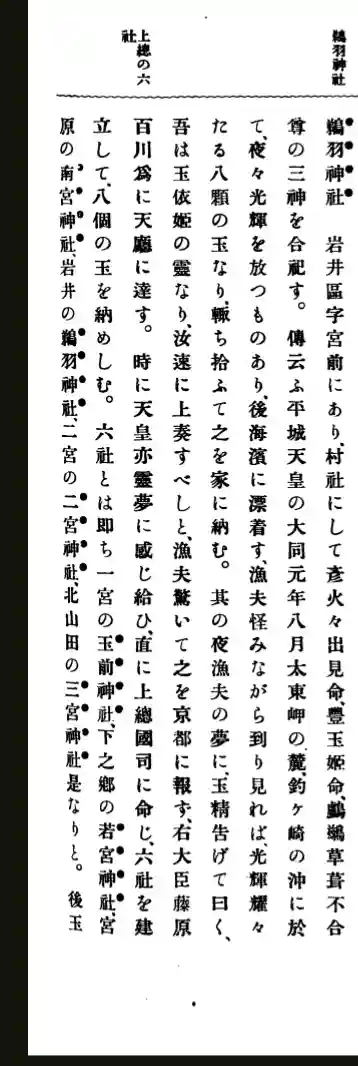 鵜羽神社
上總の六
社
鵜羽神社　岩井區字宮前にあり、村社にして彥火々出見命、豐玉姬命、鸕鷀草葺不合
尊の三神を合祀す。傳云ふ平城天皇の大同元年八月太東岬の麓、釣ヶ崎の沖に於
て、夜々光輝を放つものあり、後海濱に漂着す、漁夫怪みながら到り見れば、光輝耀々
たる八顆の玉なり、輙ち拾ふて之を家に納む。其の夜漁夫の夢に、玉精告げて曰く、
吾は玉依姬の靈なり、汝速に上奏すべしと、漁夫驚いて之を京都に報ず、右大臣藤原
百川爲に天廳に達す。時に天皇亦靈夢に感じ給ひ、直に上總國司に命じ、六社を建
立して、八個の玉を納めしむ。六社とは卽ち一宮の玉前神社、下之鄕の若宮神社、宮
原の南宮神社、岩井の鵜羽神社、二宮の二宮神社、北山田の三宮神社是なりと。後玉